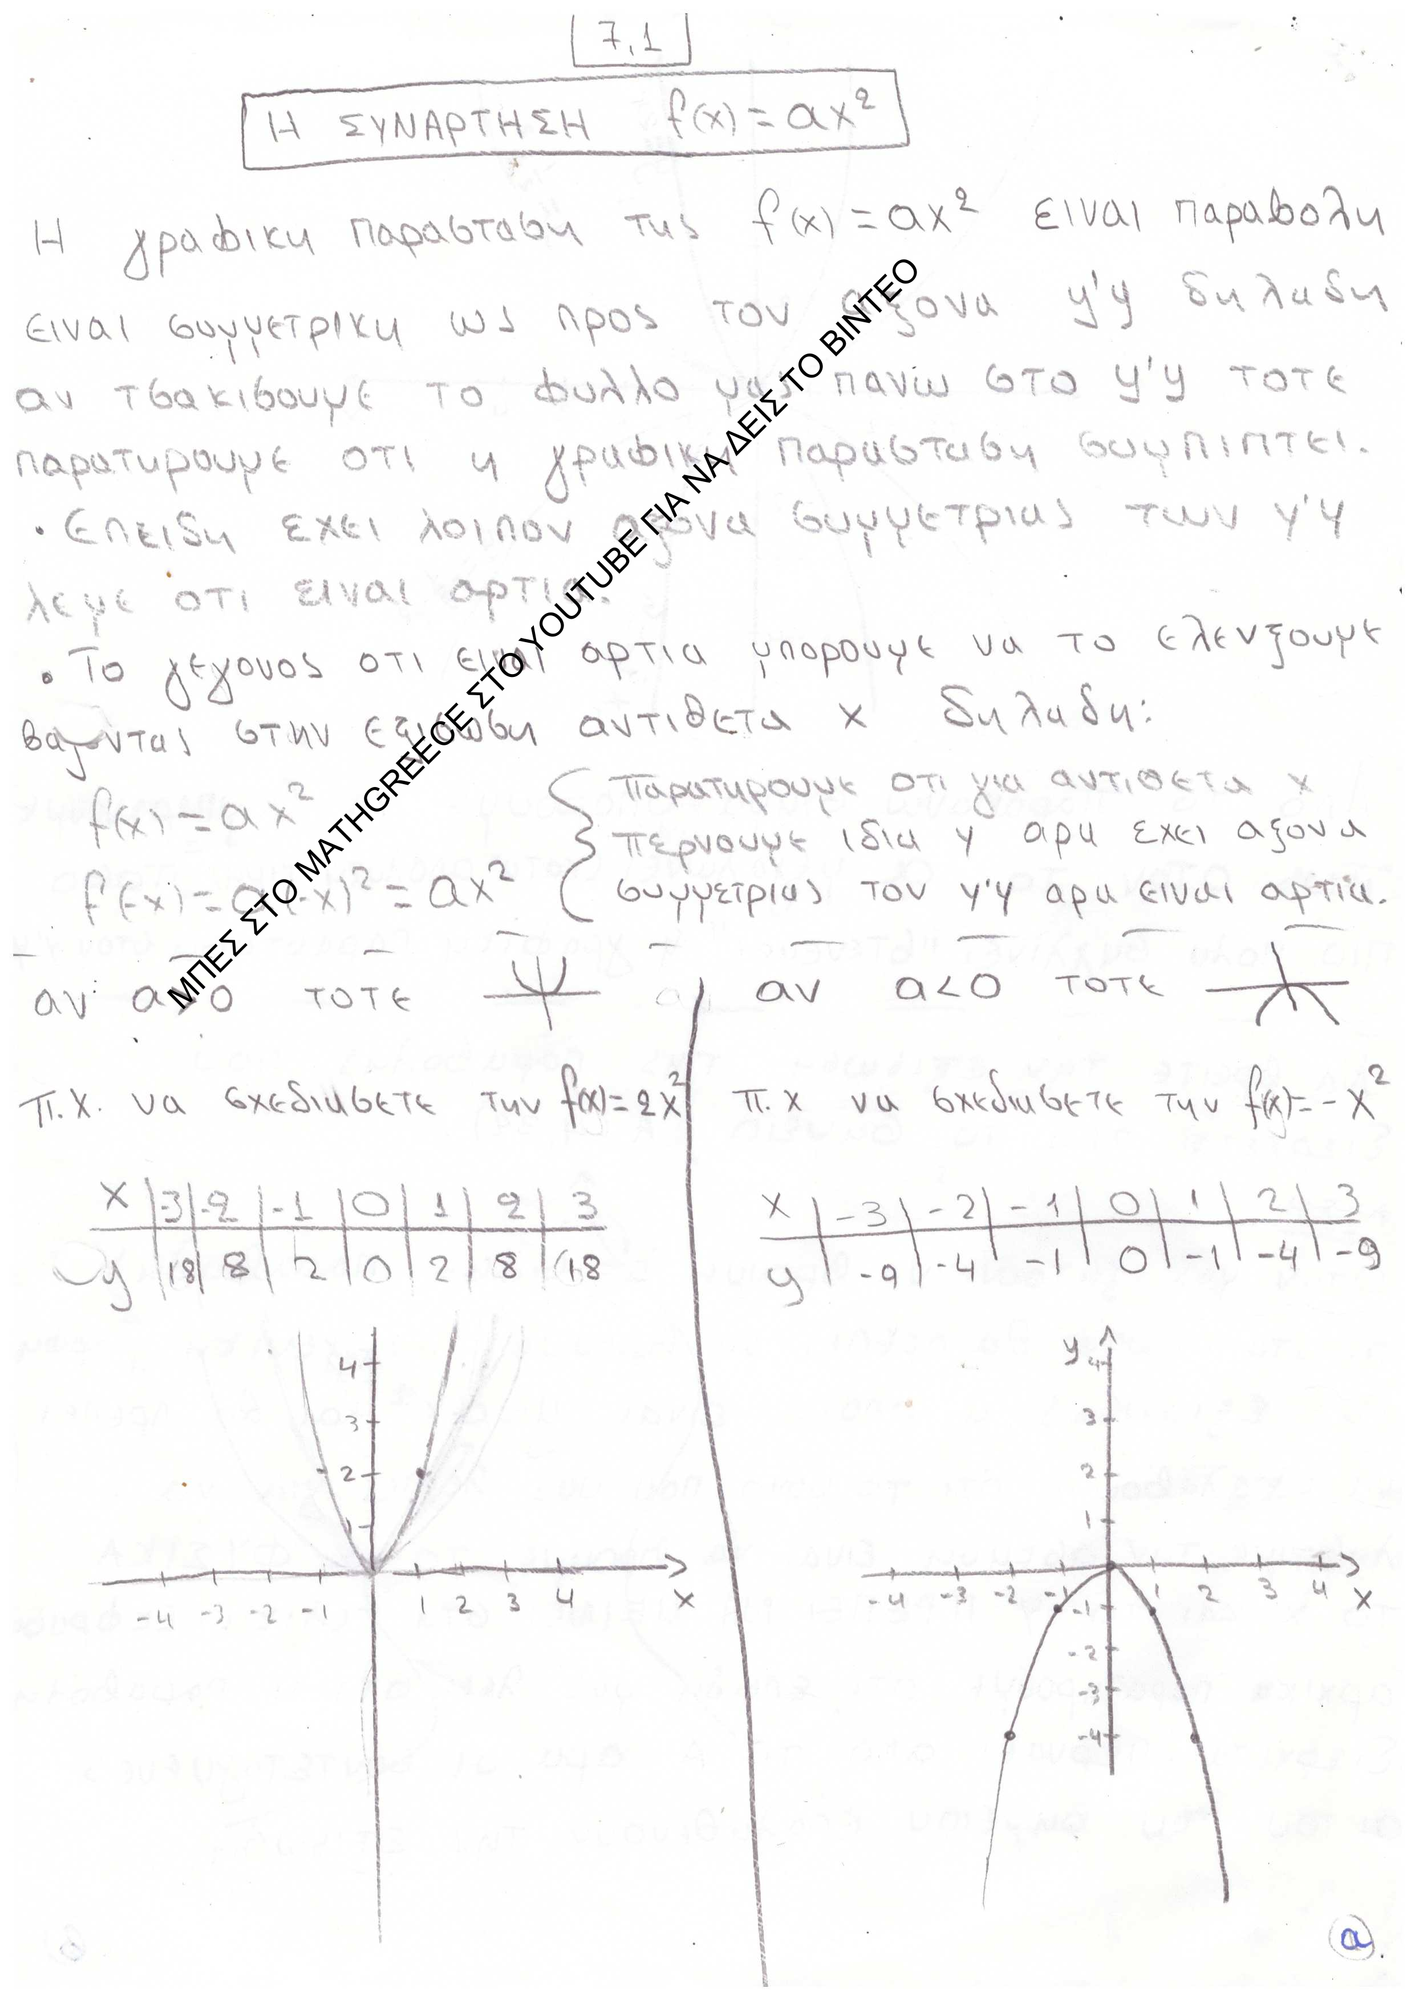 7,1
Η ΣΥΝΑΡΤΗΣΗ f(x)=ax²
Η γραφικη παρασταση της f(x)=ax² ειναι παραβολη
ειναι συμμετρικη ως προς τον αξονα y'y δηλαδη
αν τσακισουμε το φυλλο μας πανω στο y'y τοτε
παρατηρουμε οτι η γραφικη παρασταση συμπιπτει.
• Επειδη εχει λοιπον αξονα συμμετριας των y'y
λεμε οτι ειναι αρτια.
• Το γεγονος οτι ειναι αρτια μπορουμε να το ελενξουμε
βαζοντας στην εξισωση αντιθετα x δηλαδη:
f(x)=ax²
f(-x)=a(-x)²=ax²
Παρατηρουμε οτι για αντιθετα x
περνουμε ιδια y αρα εχει αξονα
συμμετριας τον y'y αρα ειναι αρτια.
αν a>0 τοτε
αν a<0 τοτε
π.χ. να σχεδιασετε την f(x)=2x²
x -3 -2 -1 0 1 2 3
y 18 8 2 0 2 8 18
4
3
2
1
-4 -3 -2 -1 1 2 3 4 x
π.χ να σχεδιασετε την f(x)=-x²
x -3 -2 -1 0 1 2 3
y -9 -4 -1 0 -1 -4 -9
y
4
3
2
1
-4 -3 -2 -1 1 2 3 4 x
-1
-2
-3
-4
a
ΜΠΕΣ ΣΤΟ MATHGREECE ΣΤΟ YOUTUBE ΓΙΑ ΝΑ ΔΕΙΣ ΤΟ ΒΙΝΤΕΟ